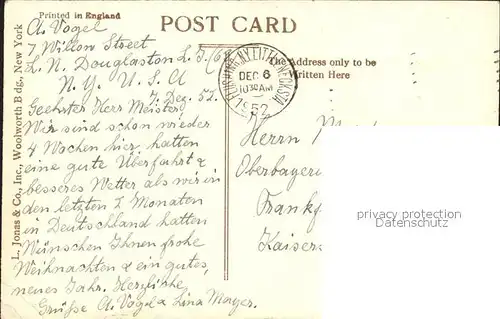 Printed in England
POST CARD
L. Jonas & Co., Inc., Woolworth Bdg., New York
The Address only to be
Written Here
FLUSHING, N.Y. LITTLE NECK STA.
DEC 6
10 30 AM
1952
A. Vogel
7 Wilson Street
L. N. Douglaston L. I. 63
N. Y. U. S. A
7. Dez. 52.
Geehrter Herr Meister,
Wir sind schon wieder
4 Wochen hier, hatten
eine gute Überfahrt &
besseres Wetter als wir in
den letzten 2 Monaten
in Deutschland hatten
Wünschen Ihnen frohe
Weihnachten & ein gutes,
neues Jahr. Herzliche
Grüße A. Vogel & Lina Mayer.
Herrn
Oberbayeri
Frankf
Kaisers
privacy protection
Datenschutz